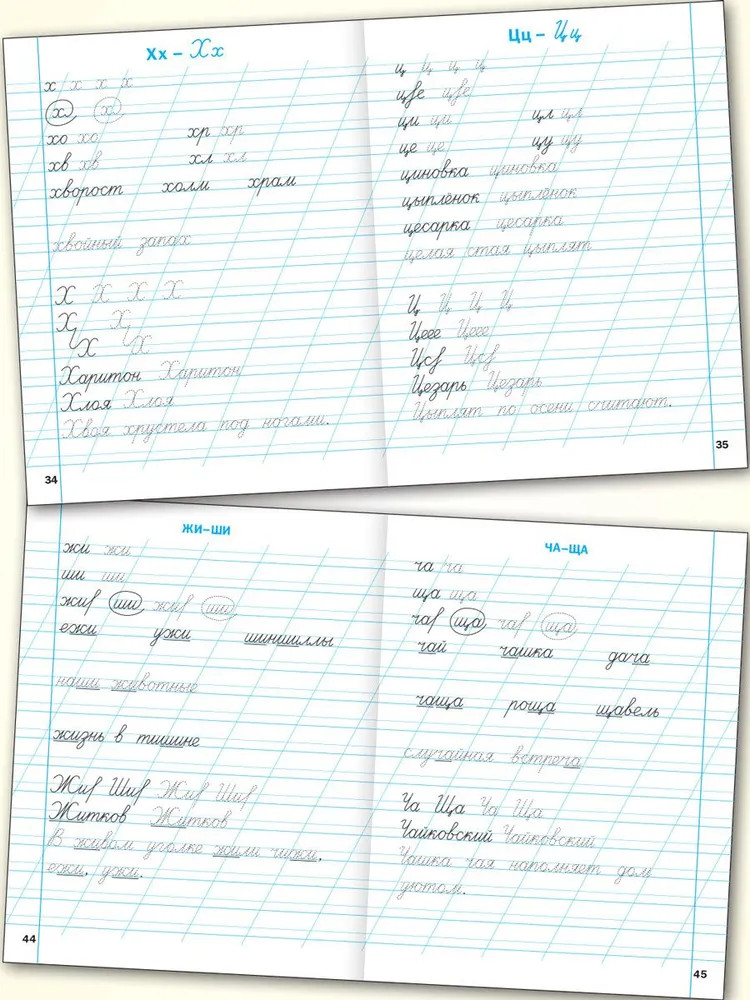 Хх – Хх
х х х х
х х
хо хо хр хр
хв хв хл хл
хворост холм храм
хвойный запах
Х Х Х Х
Х Х
Х Х
Харитон Харитон
Хлоя Хлоя
Хвоя хрустела под ногами.
34
Цц – Цц
ц ц ц ц
цве цве
ци ци цл цл
це це цу цу
циновка циновка
цыплёнок цыплёнок
цесарка цесарка
целая стая цыплят
Ц Ц Ц Ц
Цеге Цеге
Цезарь Цезарь
Цыплят по осени считают.
35
ЖИ–ШИ
жи жи
ши ши
жи ши жи ши
ежи ужи шиншиллы
наши животные
жизнь в тишине
Жи Ши Жи Ши
Житков Житков
В живом уголке жили чижи,
ежи, ужи.
44
ЧА–ЩА
ча ча
ща ща
ча ща ча ща
чай чашка дача
чаща роща щавель
случайная встреча
Ча Ща Ча Ща
Чайковский Чайковский
Чашка чая наполняет дом
уютом.
45